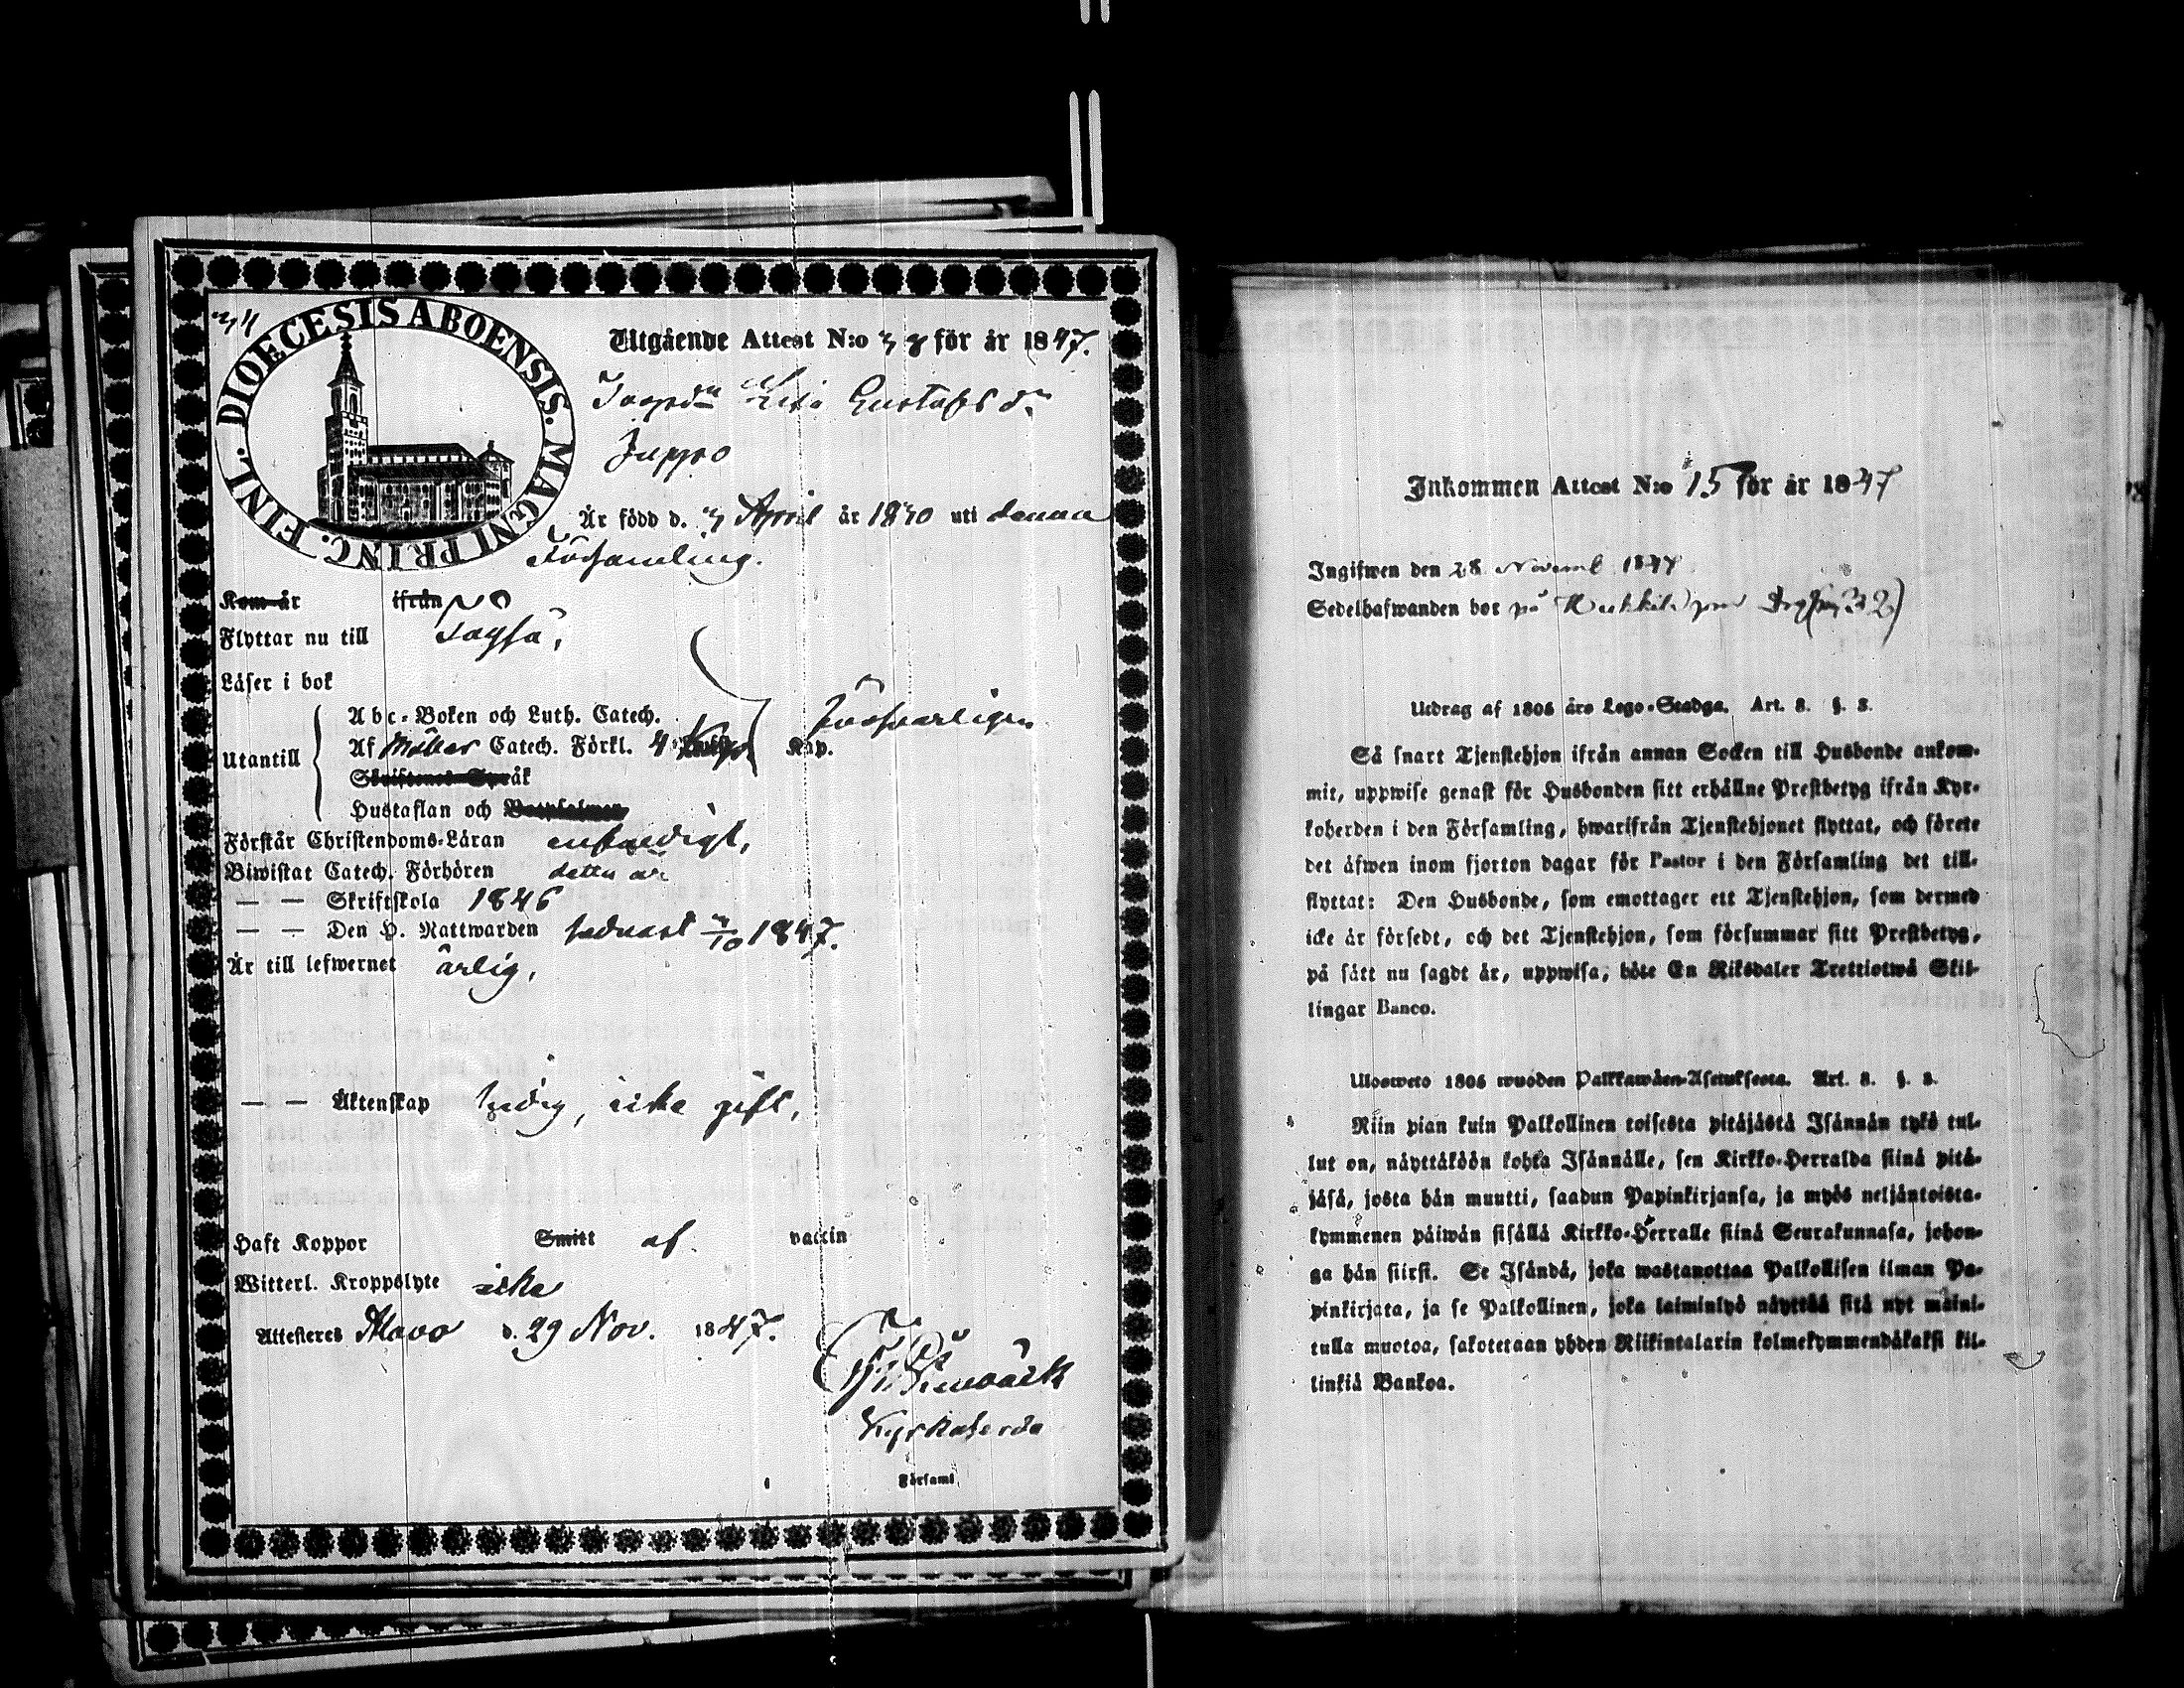 DIOECESIS ABOENSIS. MAGNI PRINC. FINL.
Utgående Attest N:o för år 1847.
Gustafsdr
Juppo
Är född d. April år 1830 uti denna
Församling.
Kom år ifrån
Flyttar nu till Sagfu,
Läser i bok
Utantill
Abc-Boken och Luth. Catech.
Af Möllers Catech. Förkl. 4 Kap.
Skriftenes Språk
Hustaflan och Botpsalmen
försvarligen
Förstår Christendoms-Läran enfaldigt,
Biwistat Catech. Förhören detta år
— — Skriftskola 1846
— — Den H. Nattwarden sednast 1847.
Är till lefwernet ärlig,
— — Äktenskap ledig, icke gift,
Haft Koppor Smitt af vaccin
Witterl. Kroppslyte icke
Attesteres d. 29 Nov. 1847.
Kyrkoherde
Församl
Inkommen Attest N:o 15 för år 1847
Ingifwen den 28 Novemb 1847
Sedelhafwanden bor på
Utdrag af 1805 års Lego-Stadga. Art. 8. §. 8.
Så snart Tjenstehjon ifrån annan Socken till Husbonde ankom-
mit, uppwise genast för Husbonden sitt erhållne Prestbetyg ifrån Kyr-
koherden i den Församling, hwarifrån Tjenstehjonet flyttat, och förete
det äfwen inom fjorton dagar för Pastor i den Församling det till-
flyttat: Den Husbonde, som emottager ett Tjenstehjon, som dermed
icke är försedt, och det Tjenstehjon, som försummar sitt Prestbetyg,
på sätt nu sagdt är, uppwisa, böte En Riksdaler Trettiotwå Skil-
lingar Banco.
Ulosweto 1805 wuoden Palkkawäen-Asetuksesta. Art. 8. §. 8.
Niin pian kuin Palkollinen toisesta pitäjästä Isännän tykö tul-
lut on, näyttäköön kohta Isännälle, sen Kirkko-Herralda siinä pitä-
jäsä, josta hän muutti, saadun Papinkirjansa, ja myös neljäntoista-
kymmenen päiwän sisällä Kirkko-Herralle siinä Seurakunnasa, johon-
ga hän siirsi. Se Isändä, joka wastanottaa Palkollisen ilman Pa-
pinkirjata, ja se Palkollinen, joka laiminlyö näyttää sitä nyt maini-
tulla muotoa, sakotetaan yhden Riikintalarin kolmekymmendäkaksi kil-
linkiä Bankoa.